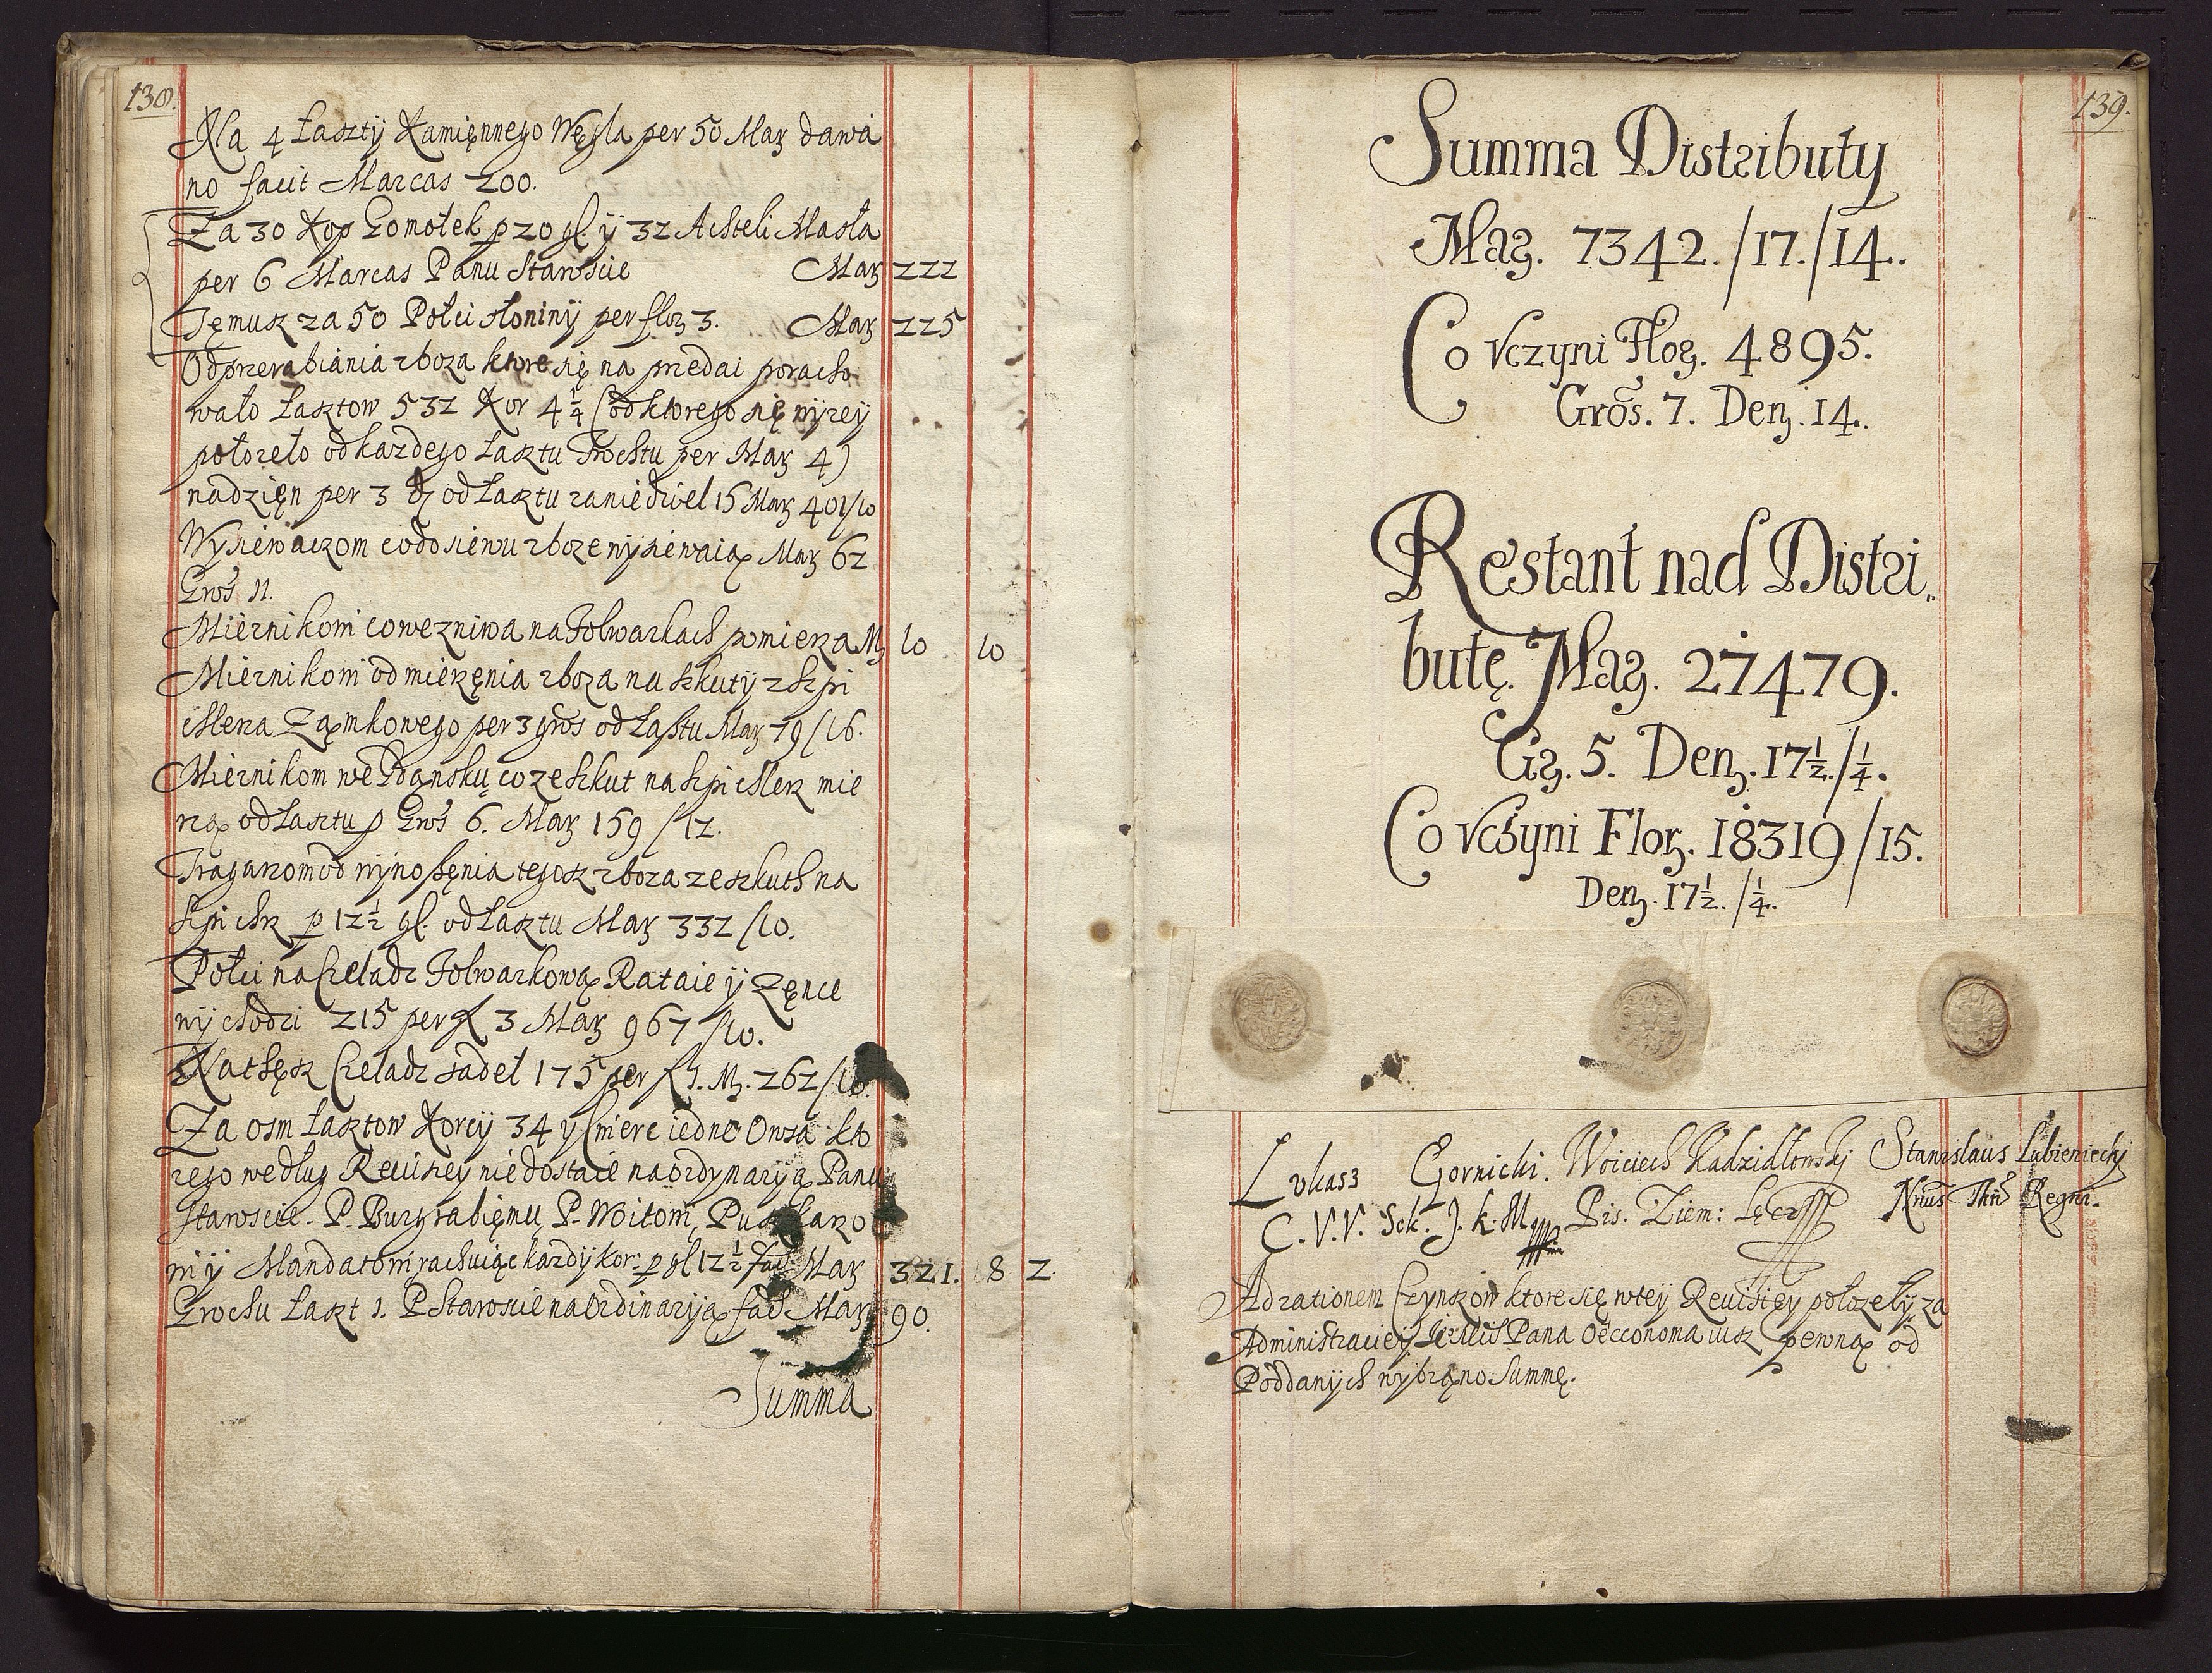 138.
Na 4 Łaszty Kamięnnego Węgla per 50 Marz dawa
no facit Marcas 200.
Za 30 Kop Gomołek p 20 gl. y 32 Achteli Masła
per 6 Marcas Panu Staroscie Marz 222
Temusz za 50 Połci słoniny per flor 3. Marz 225
Od przerabiania zboza ktore się na przedai poracho
wało Łasztow 532 Kor 4 1/4 (od ktorego się wyzey
połozeło od kazdego Łasztu Frochtu per Marz 4)
nadzięn per 3 od Łasztu za niedziel 15 Marz 401/10
Wysiewaczom co do siewu zboze wysiewaią Marz 62
Gros 11.
Miernikom co we zniwa na Folwarkach pomierza M 10 10
Miernikom od mierzęnia zboza na szkuty z Szpi
chlerza Zamkowego per 3 gros od Łasztu Marz 79/16.
Miernikom we Gdansku co ze szkut na szpichlerz mie
rzą od Łasztu p Gros 6. Marz 159/12.
Tragarzom od wynosszęnia tegosz zboza ze szkuth na
szpichlrz p 12 1/2 gl. od Łasztu Marz 332/10.
Połci na Czeladz Folwarkową Rataie y Zęnce
wychodzi 215 per fl 3 Marz 967/10.
Na thęsz Czeladz sadel 175 per fl 1. M. 262/10.
Za osm Łasztow Korcy 34 y Cwierc iedne Owsa kto
rego według Reuisiey nie dostaie na ordynaryią Panu
Staroscie. P. Burgrabięmu, P. Woitom, Puszkarzo
wy Mandatom rachuiąc kazdy kor: p gl 12 1/2 fac Marz 321. 8 2.
Grochu Łaszt 1. P Staroscie na Ordinaryią facit Marz 90.
Summa
139.
Summa Distributy
Marz. 7342./17./14.
Co vczyni Flor. 4895.
Gros. 7. Den. 14.
Restant nad Distri„
butę. Marz. 27479.
Gr. 5. Den. 17 1/2./1/4.
Co vczyni Flor. 18319/15.
Den. 17 1/2./1/4.
Lukasz Gornicki. Woiciech Kadzidłowsky Stanislaus Lubieniecky
C. V. V. Sek. J. k. M. Pis. Ziem: Nrius Thri Regni.
Ad rationem Czynszow ktore się w tey Reuisiey połozeły za
Administraciey Pana Oecconoma iusz pewną od
Poddanych wybrano Summę.